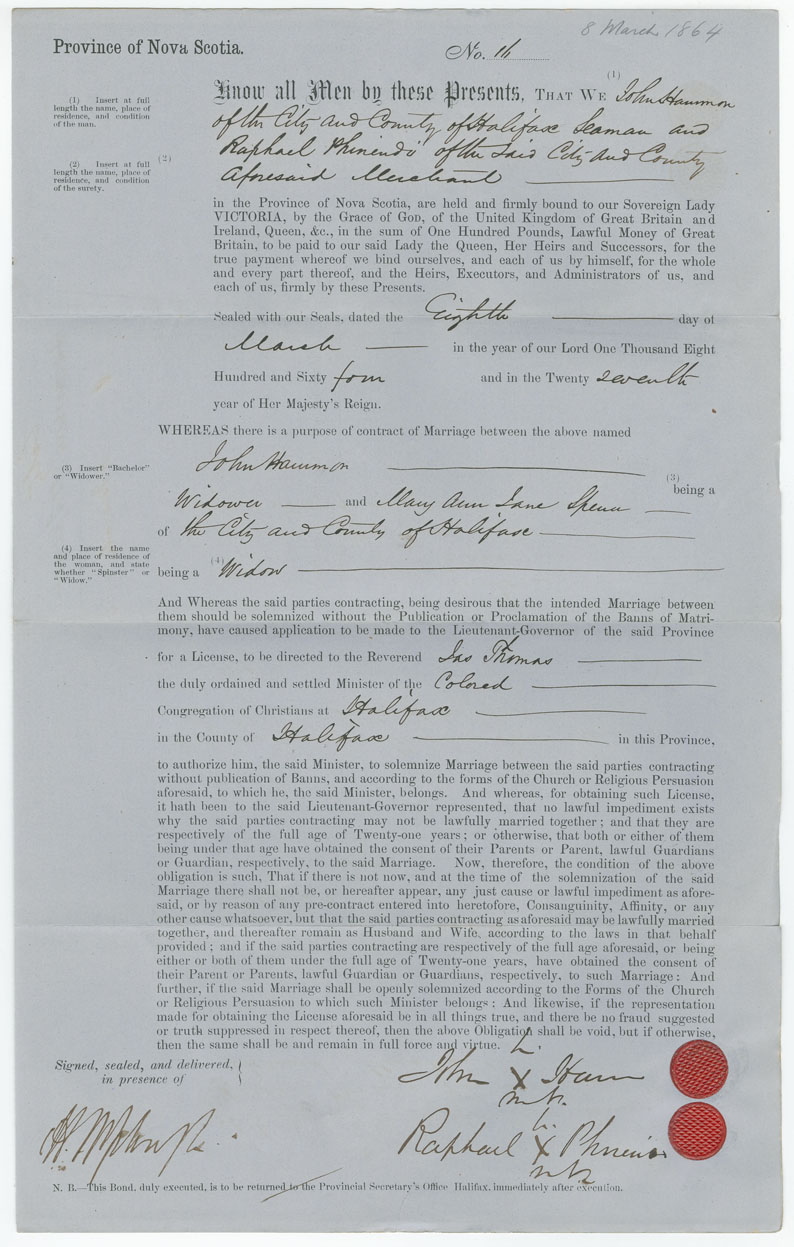 8 March 1864
Province of Nova Scotia.
No. 16
(1) Insert at full length the name, place of residence, and condition of the man.
Know all Men by these Presents, THAT WE (1) John Hammon
of the City and County of Halifax Seaman and
(2) Insert at full length the name, place of residence, and condition of the surety.
(2) Raphael of the Said City and County
Aforesaid Merchant
in the Province of Nova Scotia, are held and firmly bound to our Sovereign Lady
VICTORIA, by the Grace of GOD, of the United Kingdom of Great Britain and
Ireland, Queen, &c., in the sum of One Hundred Pounds, Lawful Money of Great
Britain, to be paid to our said Lady the Queen, Her Heirs and Successors, for the
true payment whereof we bind ourselves, and each of us by himself, for the whole
and every part thereof, and the Heirs, Executors, and Administrators of us, and
each of us, firmly by these Presents.
Sealed with our Seals, dated the Eighth day of
March in the year of our Lord One Thousand Eight
Hundred and Sixty four and in the Twenty seventh
year of Her Majesty's Reign.
WHEREAS there is a purpose of contract of Marriage between the above named
(3) Insert "Bachelor" or "Widower."
John Hammon (3) being a
Widower and Mary Ann Jane
of the City and County of Halifax
(4) Insert the name and place of residence of the woman, and state whether "Spinster" or "Widow."
being a (4) Widow
And Whereas the said parties contracting, being desirous that the intended Marriage between
them should be solemnized without the Publication or Proclamation of the Banns of Matri-
mony, have caused application to be made to the Lieutenant-Governor of the said Province
for a License, to be directed to the Reverend Jas Thomas
the duly ordained and settled Minister of the Colored
Congregation of Christians at Halifax
in the County of Halifax in this Province,
to authorize him, the said Minister, to solemnize Marriage between the said parties contracting
without publication of Banns, and according to the forms of the Church or Religious Persuasion
aforesaid, to which he, the said Minister, belongs. And whereas, for obtaining such License,
it hath been to the said Lieutenant-Governor represented, that no lawful impediment exists
why the said parties contracting may not be lawfully married together; and that they are
respectively of the full age of Twenty-one years; or otherwise, that both or either of them
being under that age have obtained the consent of their Parents or Parent, lawful Guardians
or Guardian, respectively, to the said Marriage. Now, therefore, the condition of the above
obligation is such, That if there is not now, and at the time of the solemnization of the said
Marriage there shall not be, or hereafter appear, any just cause or lawful impediment as afore-
said, or by reason of any pre-contract entered into heretofore, Consanguinity, Affinity, or any
other cause whatsoever, but that the said parties contracting as aforesaid may be lawfully married
together, and thereafter remain as Husband and Wife, according to the laws in that behalf
provided; and if the said parties contracting are respectively of the full age aforesaid, or being
either or both of them under the full age of Twenty-one years, have obtained the consent of
their Parent or Parents, lawful Guardian or Guardians, respectively, to such Marriage: And
further, if the said Marriage shall be openly solemnized according to the Forms of the Church
or Religious Persuasion to which such Minister belongs: And likewise, if the representation
made for obtaining the License aforesaid be in all things true, and there be no fraud suggested
or truth suppressed in respect thereof, then the above Obligation shall be void, but if otherwise,
then the same shall be and remain in full force and virtue.
Signed, sealed, and delivered,
in presence of
h.
John X Ham
mk.
h.
Raphael X
mk
N. B.—This Bond, duly executed, is to be returned to the Provincial Secretary's Office Halifax, immediately after execution.